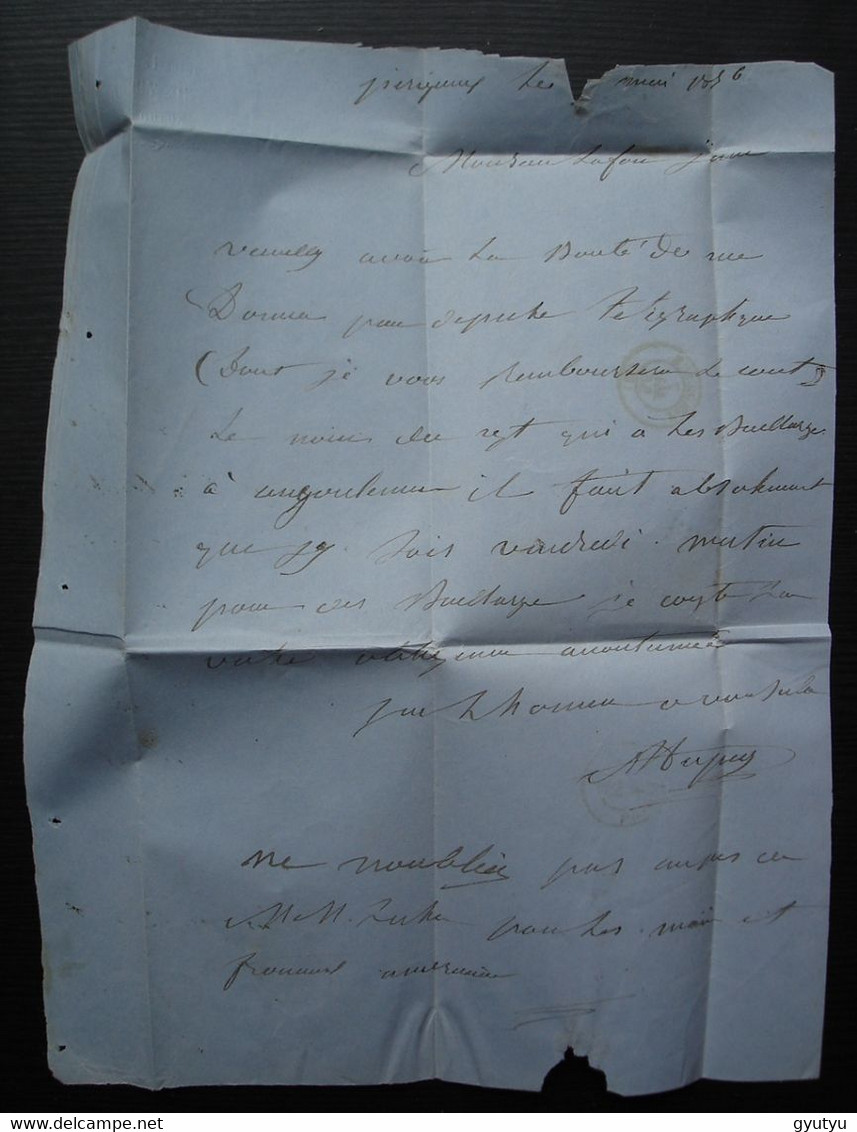 perigueux le mai 1856
Monsieur Lafon jeune
veuillez avoir La Bonté de me
Donner par depeche Telegraphique
(Dont je vous rembourserai Le cout)
Le nom du rgt qui a Les
à angouleme il faut absolument
que jy sois vendredi matin
pour ces je compte sur
votre obligeance accoutumée
jai Lhonneur
ADupuy
ne moublier pas aupres de
M M. pour Les mais et
froment americain
gyutyu